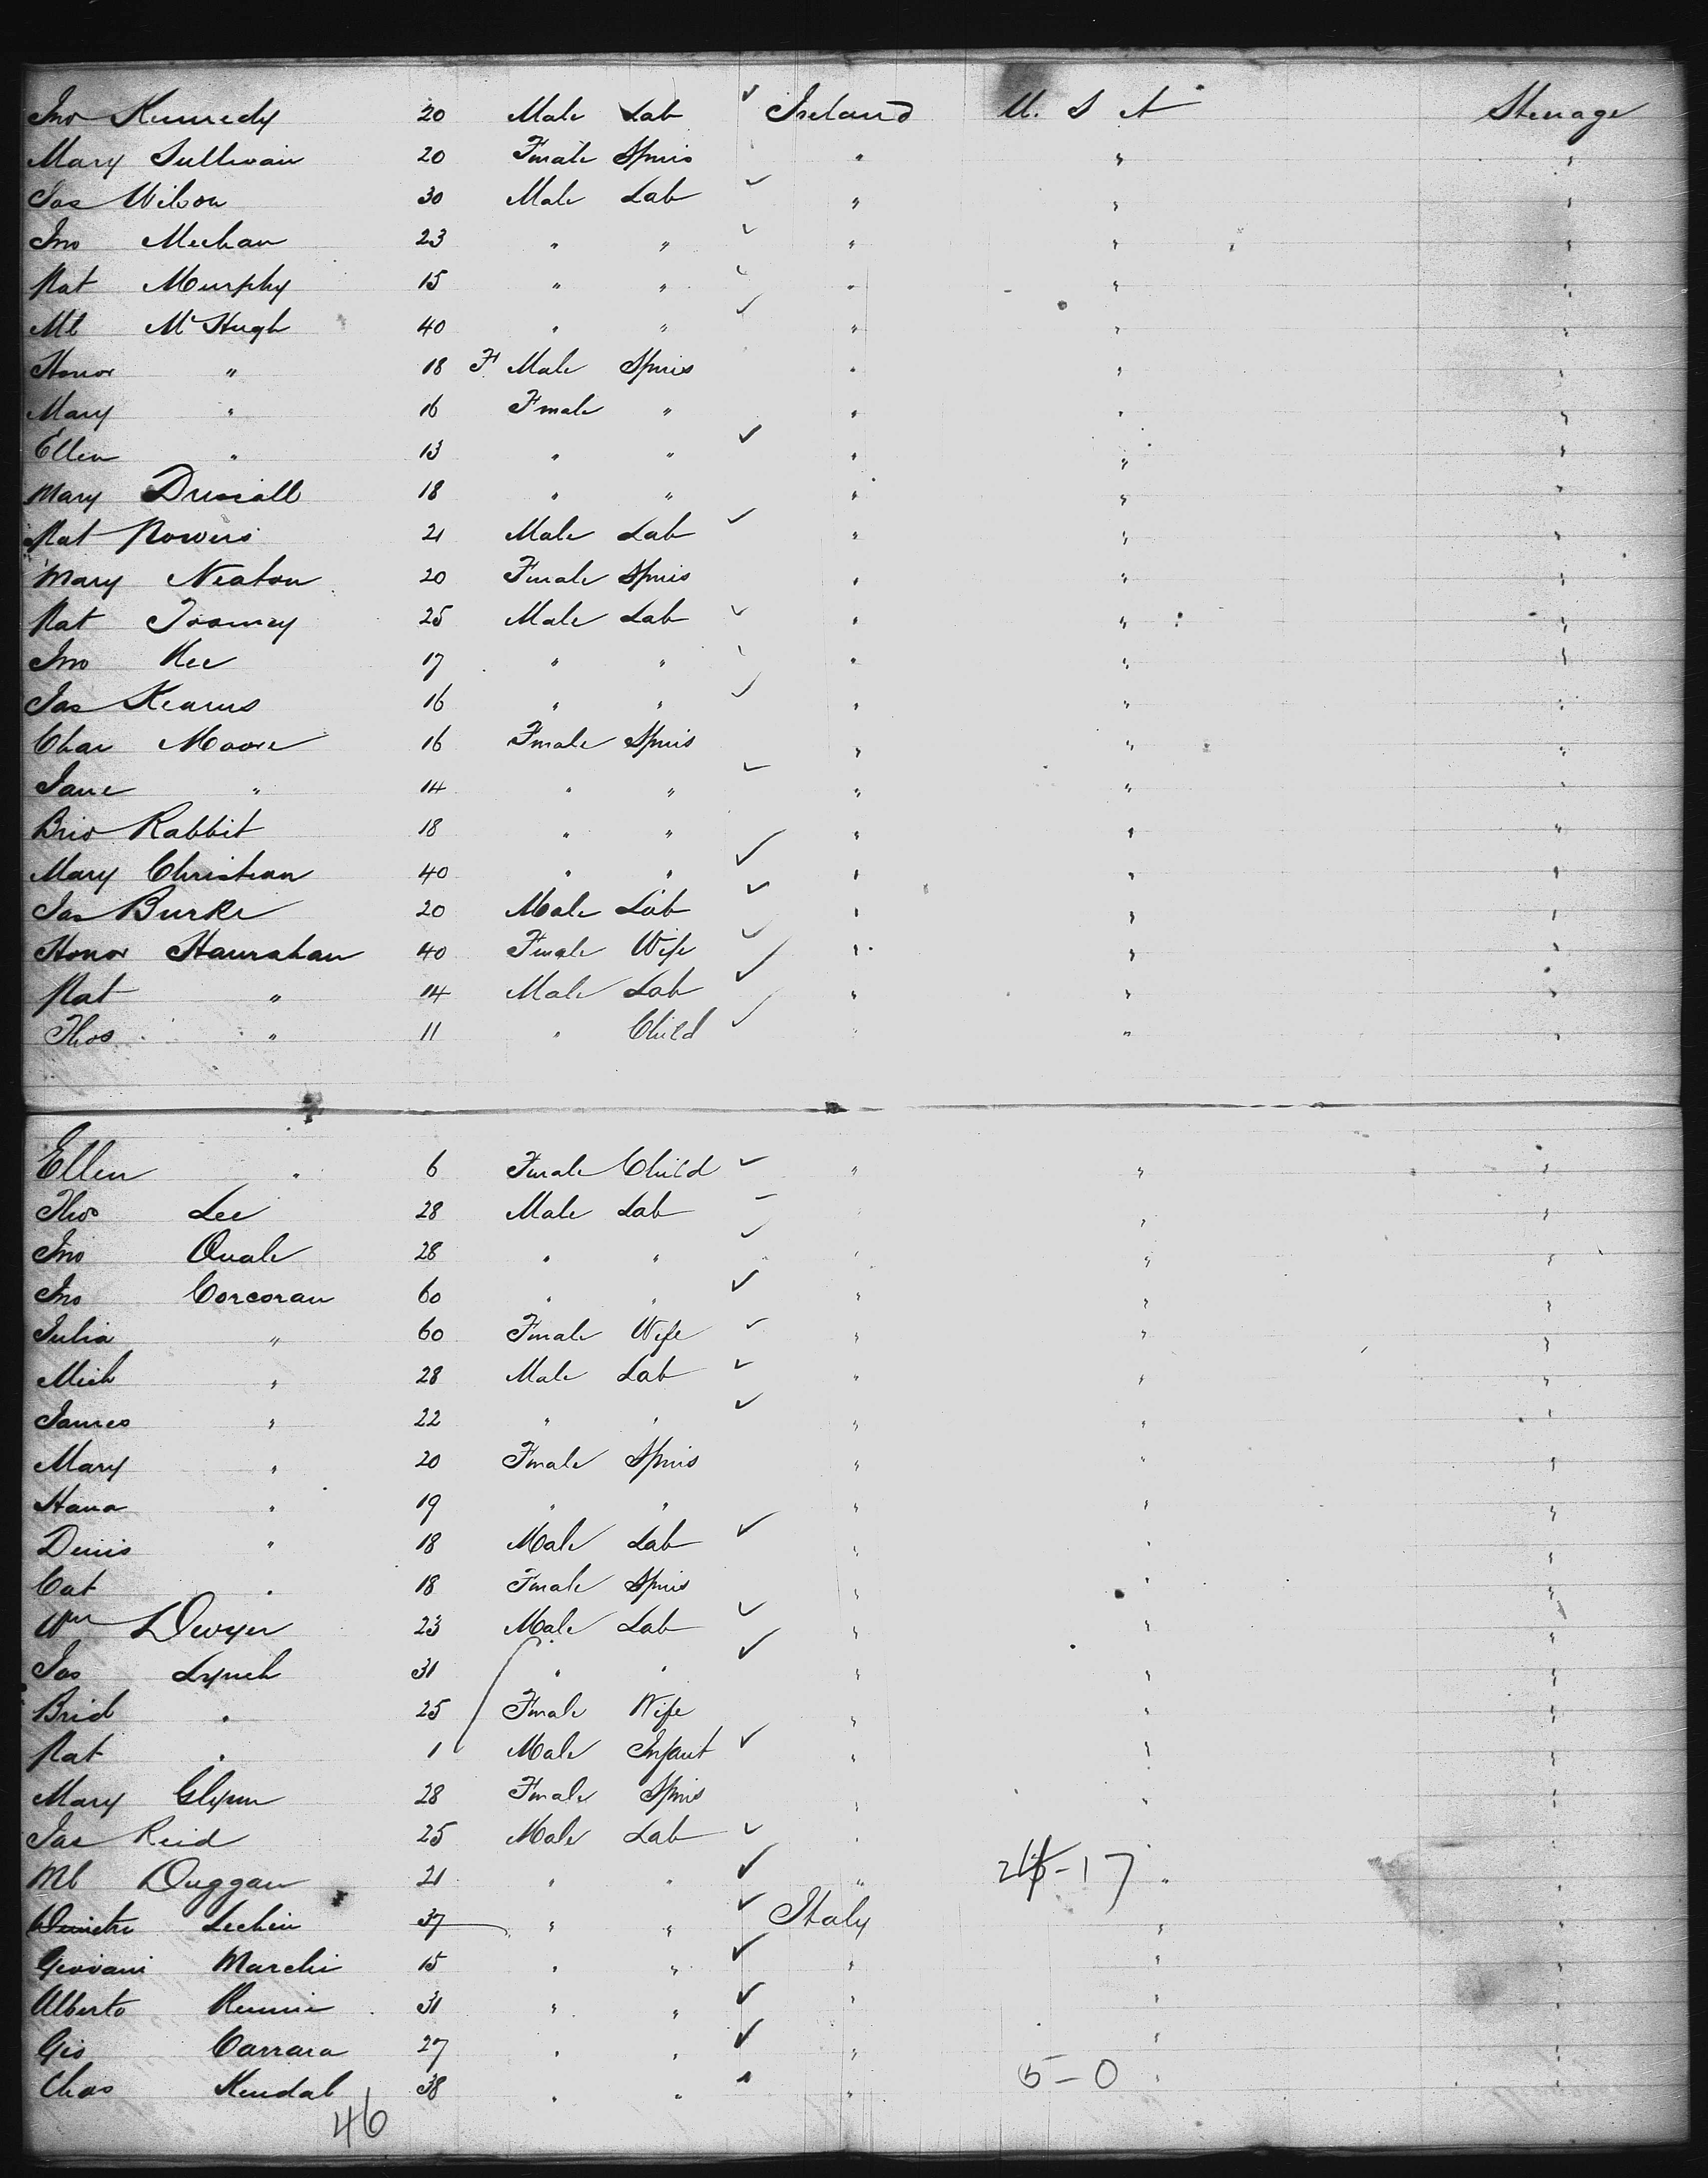 Jno Kennedy 20 Male Lab ✓ Ireland U. S A Steerage
Mary Sullivan 20 Female Spins " " "
Jas Wilson 30 Male Lab ✓ " " "
Jno Meehan 23 " " ✓ " " "
Pat Murphy 15 " " ✓ " " "
Ml McHugh 40 " " ✓ " " "
Honor " 18 F Male Spins " " "
Mary " 16 Fmale " " " "
Ellen " 13 " " ✓ " " "
Mary Driscoll 18 " " " " "
Pat Powers 21 Male Lab ✓ " " "
Mary Neaton 20 Female Spins " " "
Pat Toomey 25 Male Lab ✓ " " "
Jno Kee 17 " " ✓ " " "
Jas Kearns 16 " " ✓ " " "
Char Moore 16 Fmale Spins " " "
Jane " 14 " " ✓ " " "
Brid Rabbit 18 " " " " "
Mary Christian 40 " " ✓ " " "
Jas Burke 20 Male Lab ✓ " " "
Honor Hanrahan 40 Female Wife ✓ " " "
Pat " 14 Male Lab ✓ " " "
Thos " 11 " Child ✓ " " "
Ellen " 6 Female Child ✓ " " "
Thos Lee 28 Male Lab ✓ " " "
Jno Quale 28 " " ✓ " " "
Jno Corcoran 60 " " ✓ " " "
Julia " 60 Fmale Wife ✓ " " "
Mich " 28 Male Lab ✓ " " "
James " 22 " " ✓ " " "
Mary " 20 Fmale Spins " " "
Hana " 19 " " " " "
Denis " 18 Male Lab ✓ " " "
Cat " 18 Fmale Spins " " "
Wm Dwyer 23 Male Lab ✓ " " "
Jas Lynch 31 " " ✓ " " "
Brid " 25 Fmale Wife " " "
Pat " 1 Male Infant ✓ " " "
Mary Glynn 28 Fmale Spins " " "
Jas Reid 25 Male Lab ✓ " " "
Ml Duggan 21 " " ✓ " -17 " "
Lechin 37 " " ✓ Italy " "
Giovani Marchi 15 " " ✓ " " "
Alberto 31 " " ✓ " " "
Gio Carrara 27 " " ✓ " " "
Chas Kendal 38 " " " 5-0 " "
46